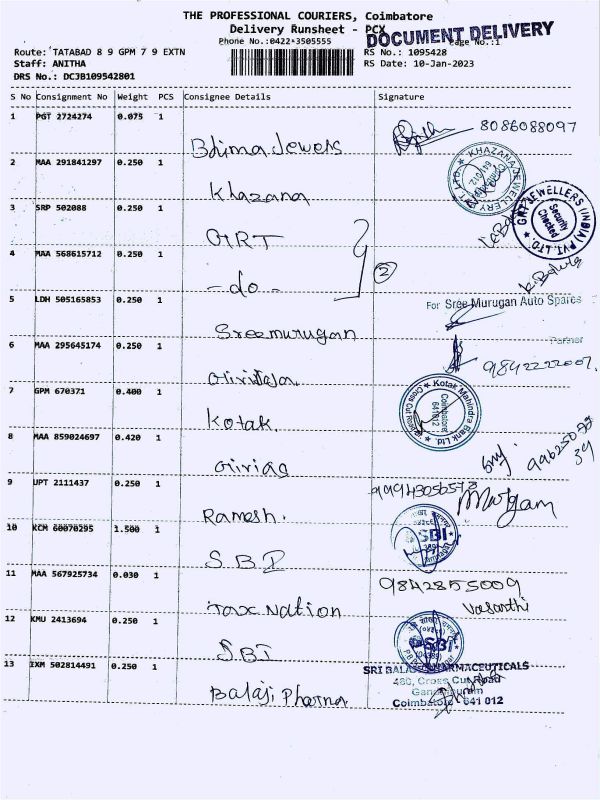 THE PROFESSIONAL COURIERS, Coimbatore
Delivery Runsheet - PCX
DOCUMENT DELIVERY
Phone No.:0422-3505555
Page No.:1
Route: TATABAD 8 9 GPM 7 9 EXTN
RS No.: 1095428
Staff: ANITHA
RS Date: 10-Jan-2023
DRS No.: DCJB109542801
S No Consignment No Weight PCS Consignee Details Signature
1 PGT 2724274 0.075 1
Bhima Jewels 8086088097
2 MAA 291841297 0.250 1
Khazana KHAZANA JEWELLERY PVT. LTD.
3 SRP 502088 0.250 1
GRT GRT JEWELLERS (INDIA) PVT. LTD. Security Checked
4 MAA 568615712 0.250 1
-do- 2
5 LDH 505165853 0.250 1
For Sree Murugan Auto Spares
Sreemurugan
Partner
6 MAA 295645174 0.250 1
9842222007.
7 GPM 670371 0.400 1
Kotak Kotak Mahindra Bank Ltd. Coimbatore 641012
8 MAA 859024697 0.420 1
9 UPT 2111437 0.250 1
Ramesh. Murgam
10 KCM 60070295 1.500 1
SBI SBI
11 MAA 567925734 0.030 1
9842855009
Tax Nation Vasanthi
12 KMU 2413694 0.250 1
SBI SBI
13 IXM 502814491 0.250 1
SRI BALAJI PHARMACEUTICALS
480, Cross Cut Road
Balaji Pharma Gandhipuram
Coimbatore 641 012